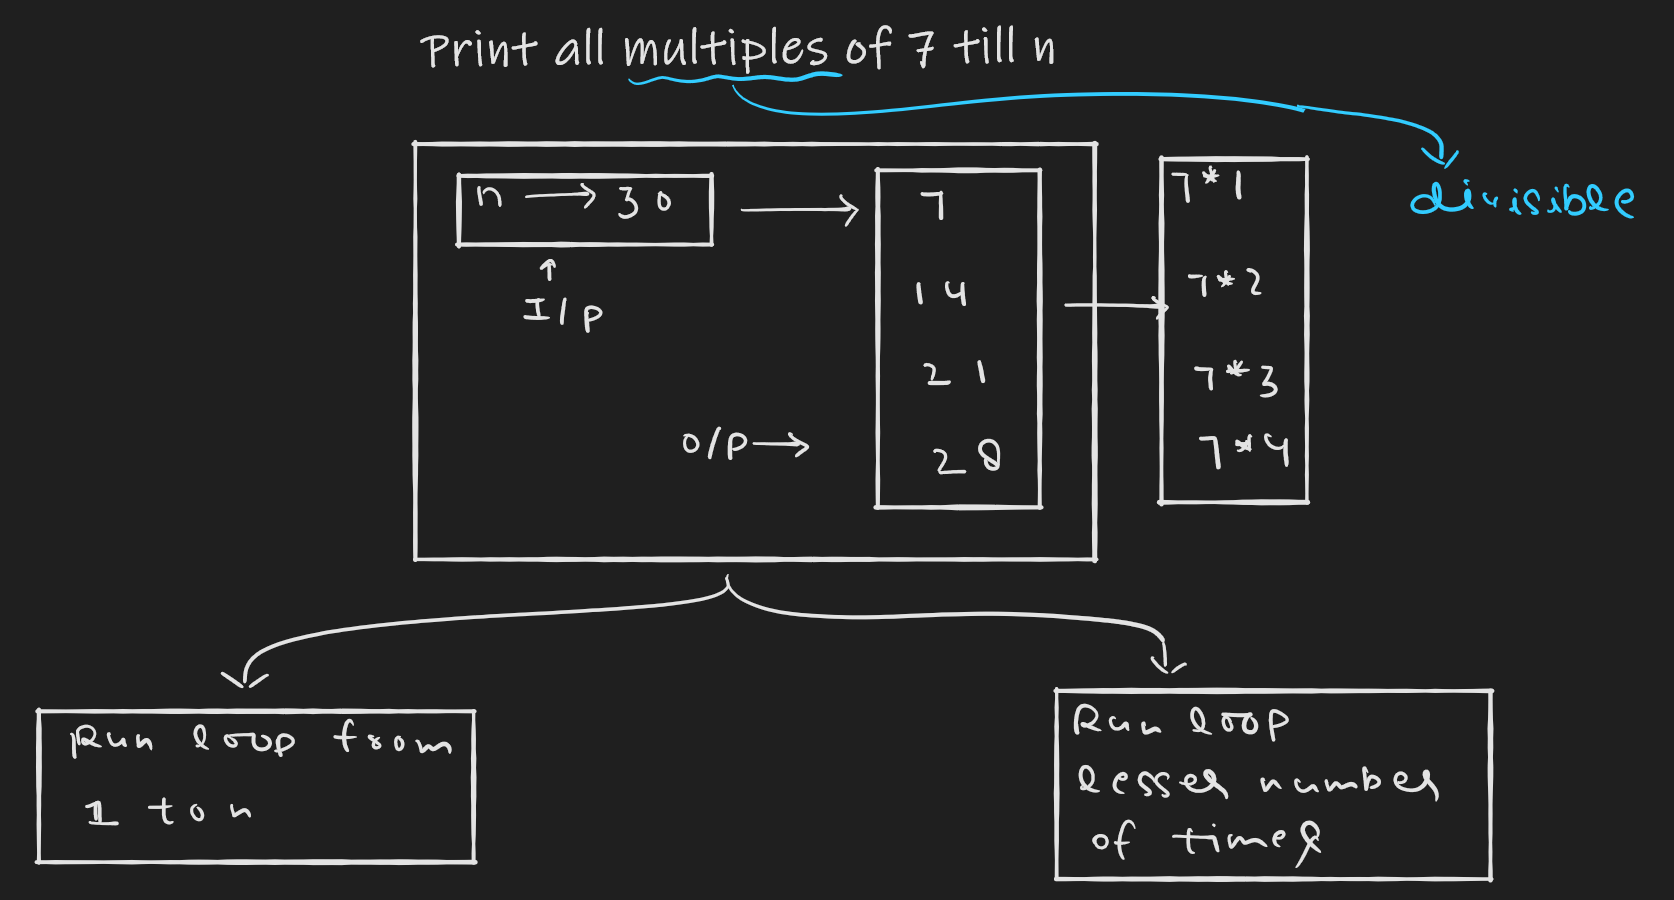 Print all multiples of 7 till n
divisible
n → 30
I/p
O/p →
7
14
21
28
7*1
7*2
7*3
7*4
Run loop from
1 to n
Run loop
lesser number
of times